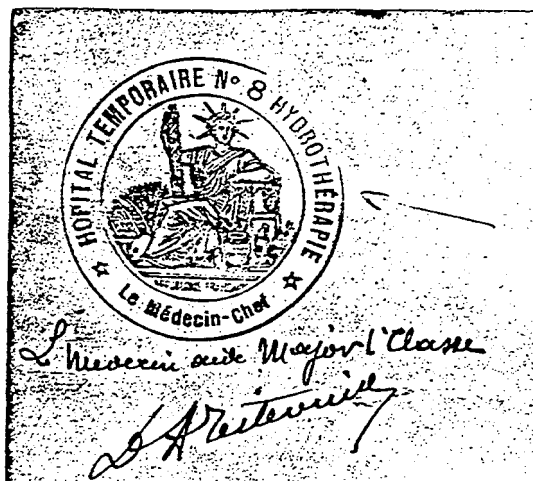 HOPITAL TEMPORAIRE N° 8 HYDROTHÉRAPIE
Le Médecin-Chef
L Medecin aide Major 1° Classe